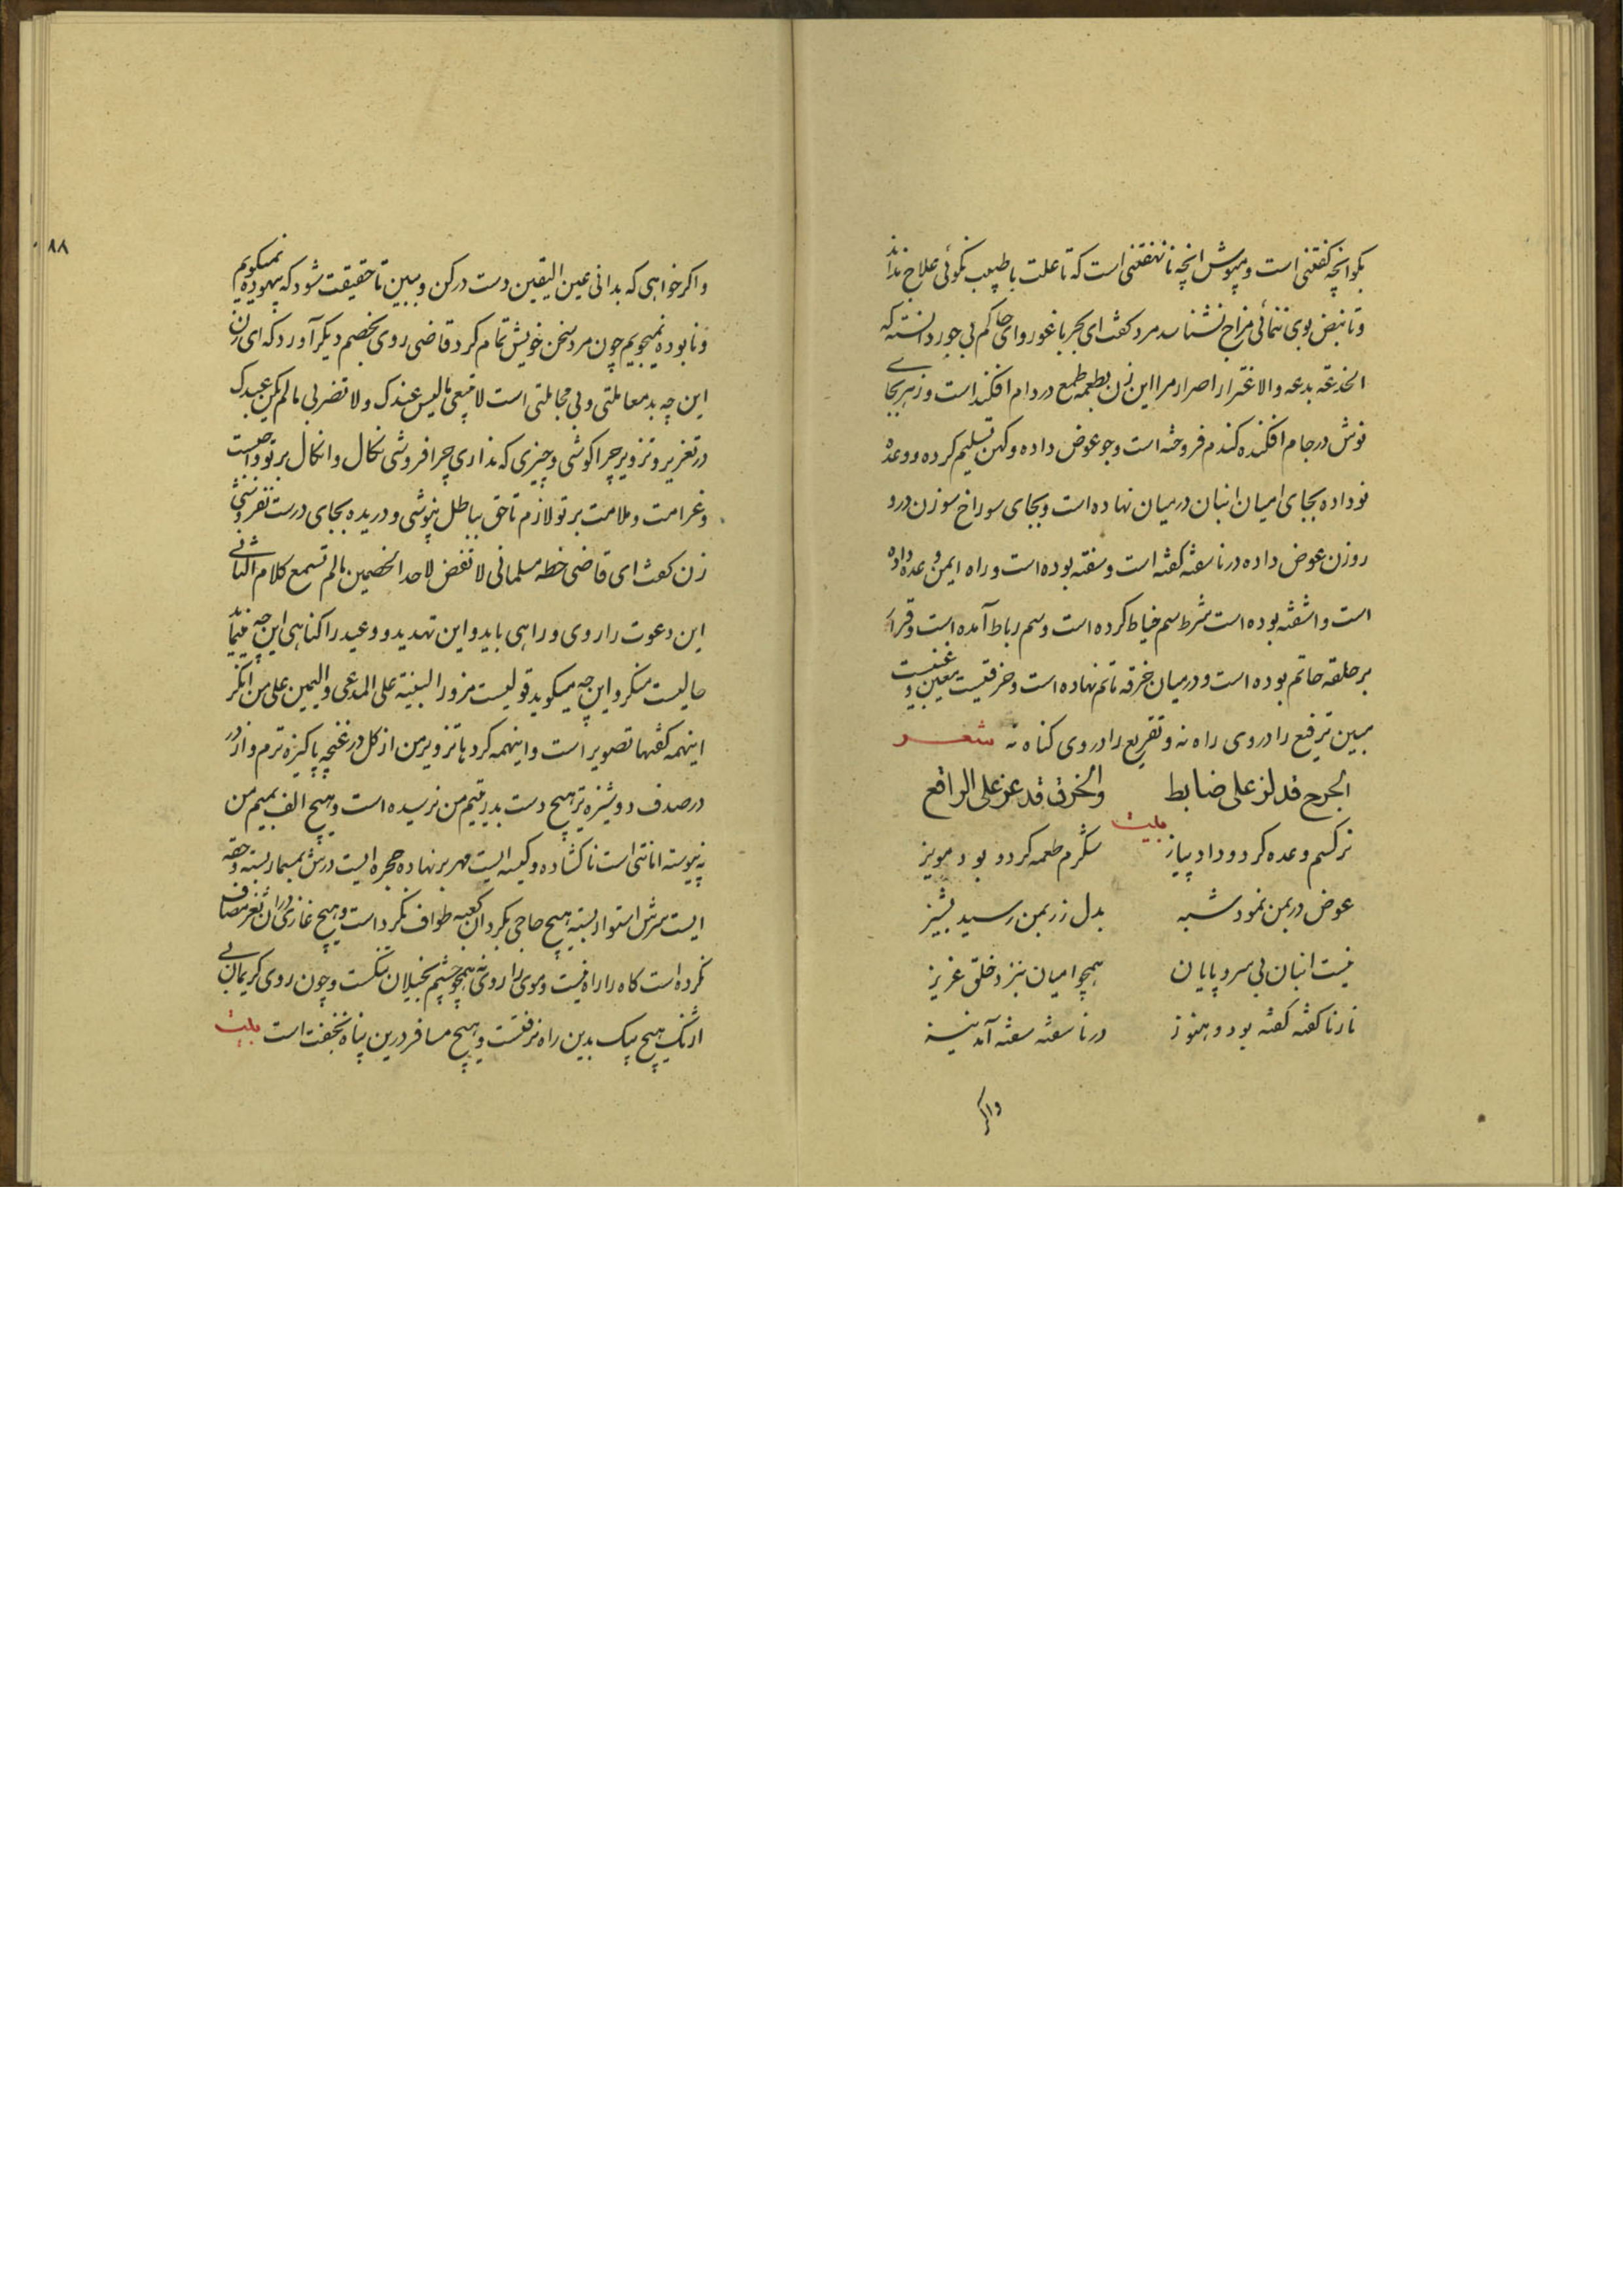 بکو انچه کفتنی است و مپوش انچه نانهفتنی است که تا علت با طبیب نکوئی علاج نداند
و تا نبض بوی ننمائی مزاج نشناسد مرد کفت ای بحر با غور و ای حاکم بی جور دانسته که
الخدعة بدعه والاغترار اصرار مرا این زن بطعمه طمع در دام افکنده است و زهر بجای
نوش در جام افکنده کندم فروخته است و جو عوض داده و کهن تسلیم کرده و وعده
نو داده بجای امیان انبان در میان نهاده است و بجای سوراخ سوزن در و
روزن عوض داده در ناسفته کفته است و سفته بوده است و راه ایمن وعده داده
است و اشفته بوده است شرط سم خیاط کرده است و سم رباط آمده است و قرار
بر حلقه خاتم بوده است و در میان خرقه ماتم نهاده است و خرقیست معین و عیبیست
مبین ترقیع را در وی راه نه و تقریع را در وی کناه نه شعر
الجرح قد لز علی ضابط والخرق قد عز علی الراقع
بیت
نرکسم وعده کرد و داد پیاز شکرم طعمه کرد و بود مویز
عوض در بمن نمود شبه بدل زر بمن رسید پشیز
نیست انبان بی سر و پایان همچو امیان بنزد خلق عزیز
نار ناکفته کفته بود و هنوز در ناسفته سفته آمد نیز
واکر
۸۸
واکر خواهی که بدانی عین الیقین دست در کن و ببین تا حقیقت شود که بیهوده نمیکویم
و نابوده نمیجویم چون مرد سخن خویش تمام کرد قاضی روی بخصم دیکر آورد که ای زن
این چه بد معاملتی و بی مجاملتی است لا تبیعی مالیس عندک ولا تضربی مالم یکن عبدک
در تغریر و تزویر چرا کوشی و چیزی که نداری چرا فروشی نکال و انکال بر تو واجبست
و غرامت و ملامت بر تو لازم تا حق بباطل نپوشی و دریده بجای درست نفروشی
زن کفت ای قاضی خطه مسلمانی لا تقض لاحد الخصمین مالم تسمع کلام الثانی
این دعوت را روی و راهی باید و این تهدید و وعید را کناهی این چه مینماید
حالیست منکر و این چه میکوید قولیست مزور البینة علی المدعی والیمین علی من انکر
اینهمه کفتها تصویر است و اینهمه کردها تزویر من از کل در غنچه پاکیزه ترم و از در
در صدف دوشیزه تر هیچ دست بدر یتیم من نرسیده است و هیچ الف بمیم من
نپیوسته امانتی است ناکشاده و کیسه ایست مهر بر نهاده حجره ایست درش بمسمار بسته و حقه
ایست سرش استوار بسته هیچ حاجی بکرد آن کعبه طواف نکرد است و هیچ غازی در آن ثغر مصاف
نکرده است کاه را راه نیست و موی را روی نه همچو چشم بخیلان تنکست و چون روی کریمان بی
اژنک هیچ پیک بدین راه نرفتست و هیچ مسافر درین پناه نخفت است بیت